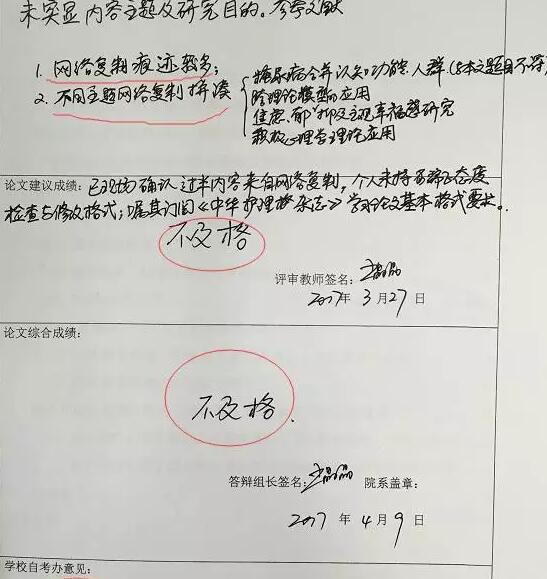 未突显内容主题及研究目的。参考文献
1. 网络复制痕迹较多;
2. 不同主题网络复制拼凑
糖尿病合并认知功能人群(与本文题目不符)
理论模型的应用
焦虑、抑郁、主观幸福感研究
积极心理学理论应用
论文建议成绩: 已现场确认过半内容来自网络复制,个人未持百端正态度
检查与修改格式;嘱其订阅《中华护理杂志》学习论文基本格式要求。
不及格
评审教师签名:
2017年 3月27日
论文综合成绩:
不及格.
答辩组长签名: 院系盖章:
2017 年 4月 9日
学校自考办意见: